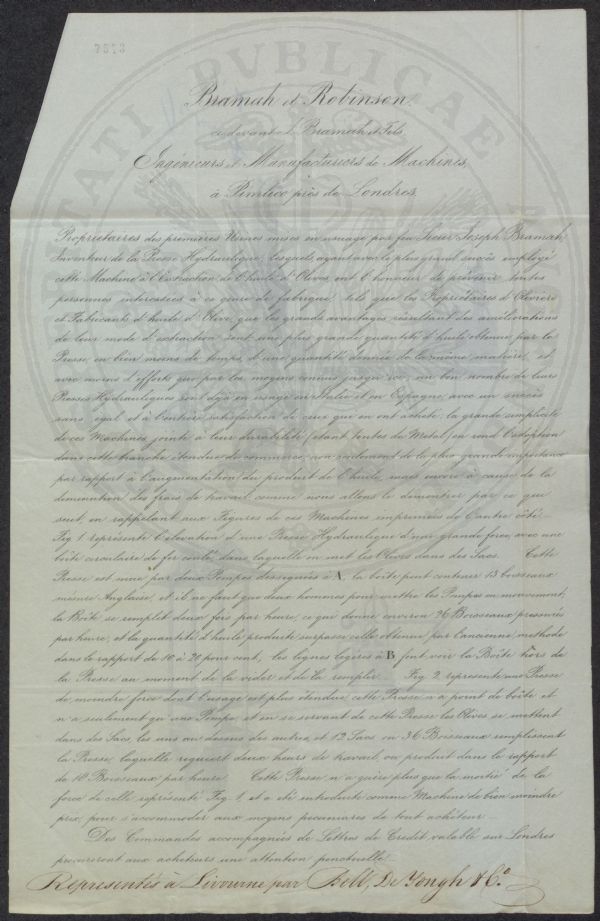 7513
Bramah et Robinson.
ci-devant T. Bramah et Fils
Ingénieurs et Manufacturiers de Machines,
à Pimlico près de Londres.
Propriétaires des premières Usines mises en usage par feu Sieur Joseph Bramah
Inventeur de la Presse Hydraulique, lesquels ayant avec le plus grand succès employé
cette Machine à l'Extraction de l'huile d'Olives, ont l'honneur de prévenir toutes
personnes intéressées à ce genre de fabrique, tels que les Propriétaires d'Oliviers
et Fabricants d'huile d'Olive, que les grands avantages, résultant des améliorations
de leur mode d'extraction sont une plus grande quantité d'huile obtenue par la
Presse en bien moins de temps, d'une quantité donnée de la même matière, et
avec moins d'efforts que par les moyens connus jusqu'ici; un bon nombre de leurs
Presses Hydrauliques sont déjà en usage en Italie et en Espagne avec un succès
sans égal et à l'entière satisfaction de ceux qui en ont acheté; la grande simplicité
de ces Machines jointe à leur durabilité, étant toutes de Métal, en rend l'adoption
dans cette branche étendue de commerce, non seulement de la plus grande importance
par rapport à l'augmentation du produit de l'huile, mais encore à cause de la
diminution des frais de travail comme nous allons le démontrer par ce qui
suit, en rappelant aux Figures de ces Machines imprimées de l'autre côté
Fig. 1 représente l'élévation d'une Presse Hydraulique d'une grande force, avec une
boîte circulaire de fer coulé, dans laquelle on met les Olives dans des Sacs. Cette
Presse est mue par deux Pompes désignées à A, la boîte peut contenir 13 boisseaux
mesure Anglaise, et il ne faut que deux hommes pour mettre les Pompes en mouvement,
la Boîte se remplit deux fois par heure, ce qui donne environ 26 Boisseaux pressurés
par heure, et la quantité d'huile produite surpasse celle obtenue par l'ancienne méthode
dans le rapport de 10 à 20 pour cent, les lignes légères à B font voir la Boîte hors de
la Presse au moment de la vider et de la remplir. Fig. 2 représente une Presse
de moindre force dont l'usage est plus étendu cette Presse n'a point de boîte et
n'a seulement qu'une Pompe, et en se servant de cette Presse les Olives se mettent
dans des Sacs, les uns au dessus des autres, et 12 Sacs ou 36 Boisseaux remplissent
la Presse, laquelle requiert deux heures de travail, ou produit dans le rapport
de 18 Boisseaux par heure. Cette Presse n'a guère plus que la moitié de la
force de celle représenté Fig. 1, et a été introduite comme Machine de bien moindre
prix, pour s'accommoder aux moyens pécuniaires de tout acheteur.
Des Commandes accompagnées de Lettres de Crédit valable sur Londres
procureront aux acheteurs une attention ponctuelle
Représentés à Livourne par Bell, De Yongh & Co.
PUBLICAE